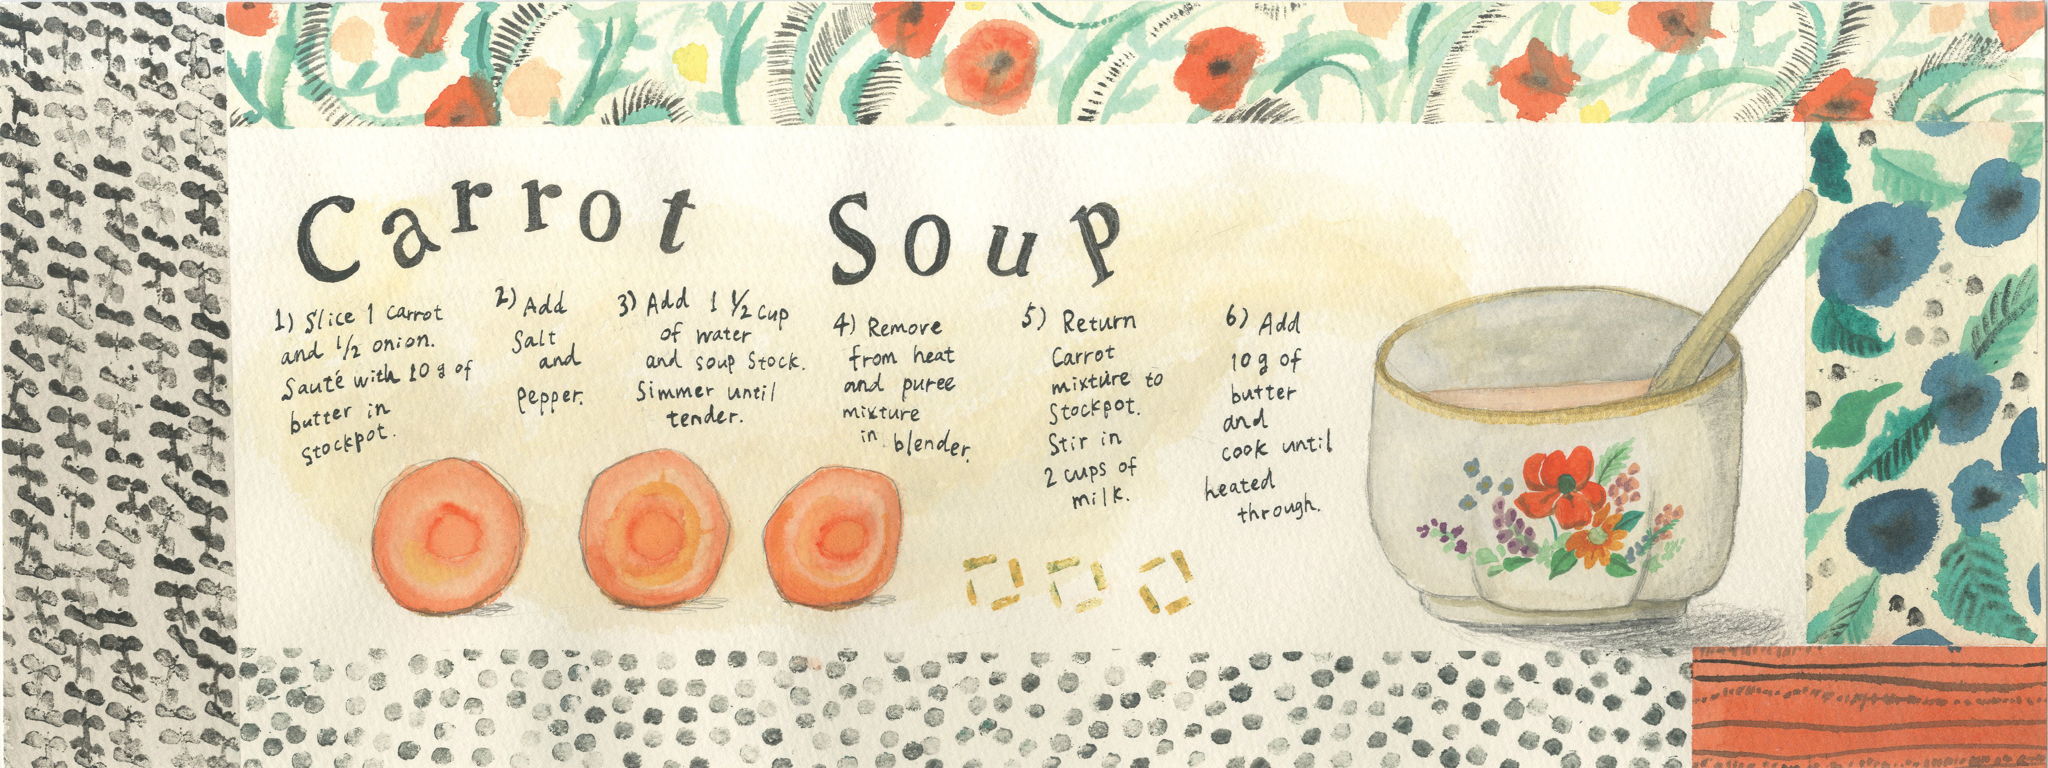 Carrot Soup
1) Slice 1 carrot
and 1/2 onion.
Sauté with 10 g of
butter in
Stockpot.
2) Add
Salt
and
Pepper.
3) Add 1 1/2 cup
of water
and soup Stock.
Simmer until
tender.
4) Remove
from heat
and puree
mixture
in blender.
5) Return
Carrot
mixture to
Stockpot.
Stir in
2 cups of
milk.
6) Add
10 g of
butter
and
cook until
heated
through.